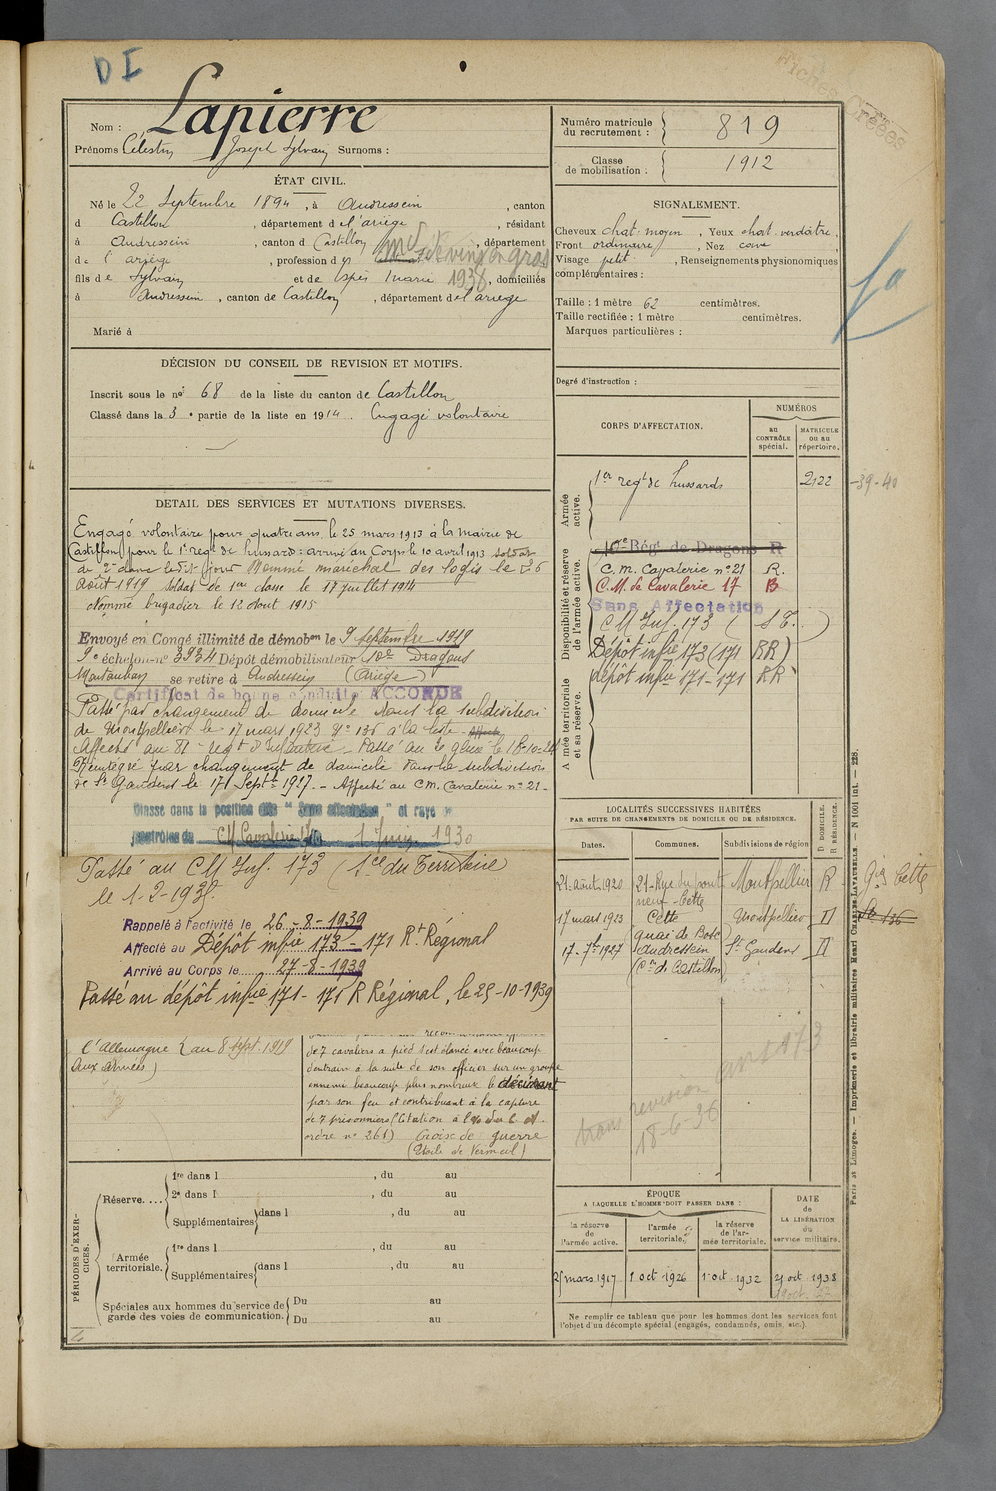 DI
Fiches Créées
Nom : Lapierre
Prénoms Célestin Joseph Sylvain Surnoms :
Numéro matricule du recrutement : 819
Classe de mobilisation : 1912
ÉTAT CIVIL.
Né le 22 Septembre 1894, à Audressein, canton
d Castillon, département de l'ariège, résidant
à Audressein, canton d Castillon, département
de l'ariège, profession d
md de vins en gros
1938
fils de Sylvain et de Espès Marie, domiciliés
à Audressein, canton de Castillon, département de l'ariège
Marié à
SIGNALEMENT.
Cheveux chat. moyen, Yeux chat. verdâtre,
Front ordinaire, Nez cave,
Visage petit, Renseignements physionomiques
complémentaires :
Taille : 1 mètre 62 centimètres.
Taille rectifiée : 1 mètre centimètres.
Marques particulières :
Degré d'instruction :
DÉCISION DU CONSEIL DE REVISION ET MOTIFS.
Inscrit sous le no 68 de la liste du canton de Castillon
Classé dans la 3e partie de la liste en 1914. Engagé volontaire
CORPS D'AFFECTATION.
NUMÉROS
au CONTRÔLE spécial.
MATRICULE ou au répertoire.
Armée active.
1er regt de hussards 2122
39-40
Disponibilité et réserve de l'armée active.
10e Rég. de Dragons R
C. M. Cavalerie no 21 R.
C. M. de Cavalerie 17 B
Sans Affectation
CM Inf. 173 (ST.)
Dépôt infie 173 (171 RR)
dépôt infie 171-171 RR
Armée territoriale et sa réserve.
DETAIL DES SERVICES ET MUTATIONS DIVERSES.
Engagé volontaire pour quatre ans le 25 mars 1913 à la mairie de
Castillon pour le 1er regt de hussards : arrivé au Corps le 10 avril 1913 soldat
de 2e classe ledit jour Nommé maréchal des logis le 26
Août 1919 Soldat de 1ère classe le 17 juillet 1914
Nommé brigadier le 12 Aout 1915
Envoyé en Congé illimité de démobon le 9 septembre 1919
9e échelon no 3934 Dépôt démobilisateur 10e Dragons
Montauban se retire à Audressein (Ariège)
Certificat de bonne conduite ACCORDÉ
Passé par changement de domicile dans la subdivision
de Montpellier le 17 mars 1923 no 136 à la liste
Affecté au 81e regt d'Infanterie - Passé au
Réintégré par changement de domicile dans la subdivision
de St Gaudens le 17 Septe 1927. - Affecté au C.M. Cavalerie no 21 -
Classé dans la position dite "Sans affectation" et rayé
contrôles du CM Cavalerie 1 Juin 1930
Passé au CM Inf. 173 (Sce du Territoire)
le 1-2-193
Rappelé à l'activité le 26-8-1939
Affecté au Dépôt infie 173 - 171 Rt Régional
Arrivé au Corps le 27-8-1939
Passé au dépôt infie 171 - 171 R Régional, le 25-10-1939
l'Allemagne au 8 sept. 1919
(aux armées)
de 7 cavaliers à pied s'est élancé avec beaucoup
d'entrain à la suite de son officier sur un groupe
ennemi beaucoup plus nombreux le décidant
par son feu et contribuant à la capture
de 7 prisonniers (Citation à l'o
ordre no 261) Croix de guerre
(Etoile de Vermeil)
LOCALITÉS SUCCESSIVES HABITÉES
PAR SUITE DE CHANGEMENTS DE DOMICILE OU DE RÉSIDENCE.
Dates. Communes. Subdivisions de région
D DOMICILE. R RÉSIDENCE.
21 août 1920 21-Rue du pont neuf - Cette Montpellier R
17 mars 1923 Cette quai de Bosc Montpellier D
17-7bre 1927 Audressein (Con de Castillon) St Gaudens D
Cette
136
trans revision
18-6-36
173
PÉRIODES D'EXERCICES.
Réserve....
1re dans l , du au
2e dans l , du au
Supplémentaires dans l , du au
Armée territoriale.
1re dans l , du au
Supplémentaires dans l , du au
Spéciales aux hommes du service de garde des voies de communication.
Du au
Du au
ÉPOQUE
A LAQUELLE L'HOMME DOIT PASSER DANS :
la réserve de l'armée active.
l'armée territoriale.
la réserve de l'armée territoriale.
DATE de LA LIBÉRATION du service militaire.
25 mars 1917 1 oct 1926 1 oct. 1932 25 oct 1938
Ne remplir ce tableau que pour les hommes dont les services font
l'objet d'un décompte spécial (engagés, condamnés, omis, etc.).
Paris et Limoges. — Imprimerie et librairie militaires Henri CHARLES-LAVAUZELLE. — N 1001 int. — 228.